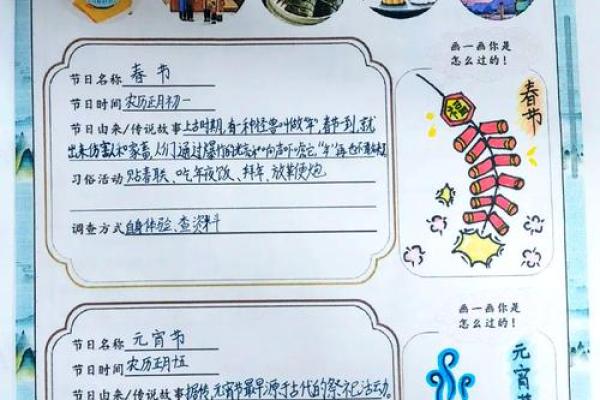 节日名称 春节
节日时间 农历正月初一
节日由来/传说故事 上古时期,有一种怪兽叫做"年",春节一到,就
出来伤害人和家畜,人们通过爆竹的火光和响声吓唬它,"年"再也不敢
习俗活动 贴春联、吃年夜饭、拜年、放鞭炮
调查方式 自身体验、查资料
画一画你是
怎么过的!
春节
节日名称 元宵节
节日时间 农历正月十五
节日由来/传说故事 据传,元宵节最早源于古代的祭祀活动。
画一画你是
怎么过的!
元宵节